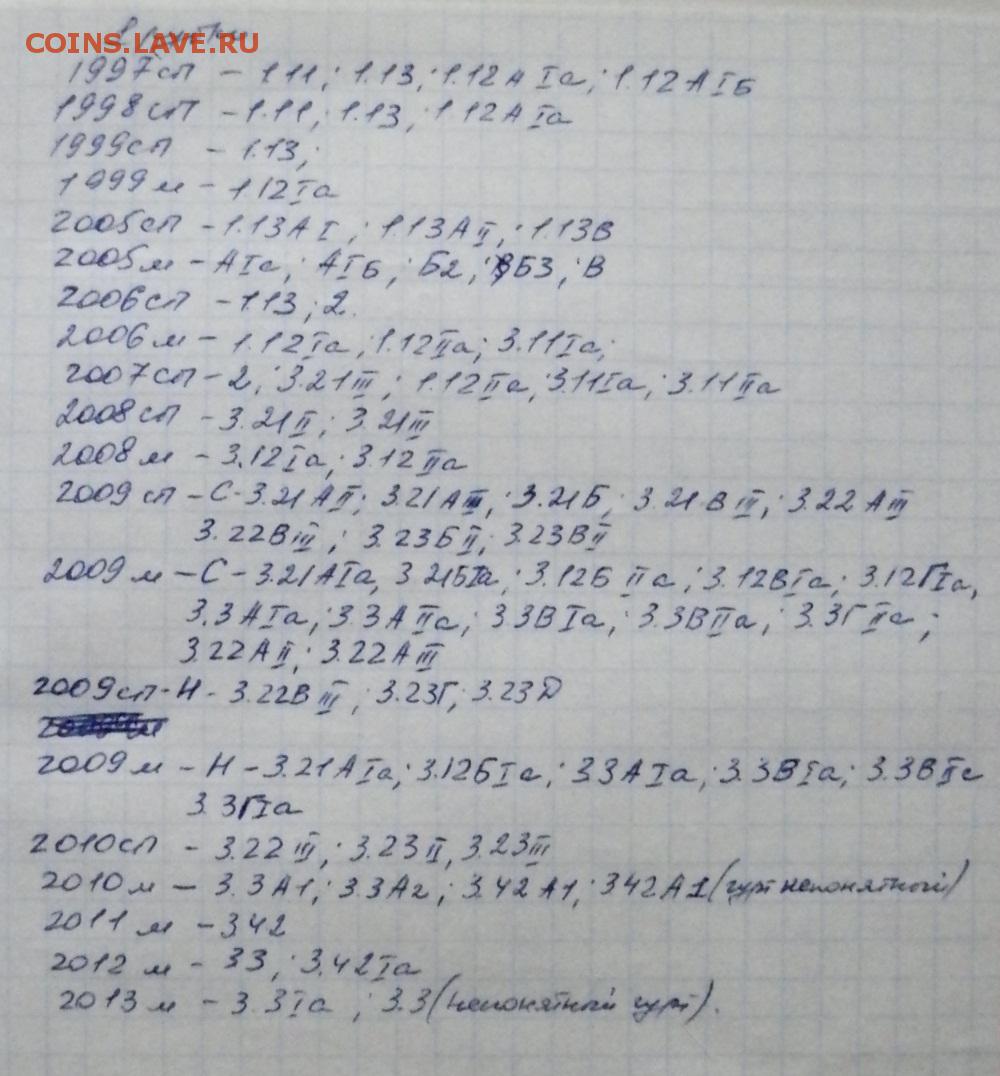 COINS.LAVE.RU
1997сп - 1.11; 1.13; 1.12А Iа; 1.12А IБ
1998сп - 1.11; 1.13; 1.12А Iа
1999сп - 1.13;
1999м - 1.12Iа
2005сп - 1.13А I; 1.13А II; 1.13В
2005м - А Iа; А IБ; Б2; Б3; В
2006сп - 1.13; 2.
2006м - 1.12Iа; 1.12IIа; 3.11Iа;
2007сп - 2; 3.21III; 1.12IIа; 3.11Iа; 3.11IIа
2008сп - 3.21II; 3.21III
2008м - 3.12Iа; 3.12IIа
2009сп - С - 3.21АII; 3.21АIII; 3.21Б; 3.21ВIII; 3.22АIII
3.22ВIII; 3.23БII; 3.23ВII
2009м - С - 3.21АIа, 3.21БIа; 3.12БIIа; 3.12ВIа; 3.12ГIа,
3.3АIа; 3.3АIIа; 3.3ВIа; 3.3ВIIа; 3.3ГIIа;
3.22АII; 3.22АIII
2009сп - Н - 3.22ВIII; 3.23Г; 3.23Д
2009м - Н - 3.21АIа; 3.12БIа; 3.3АIа; 3.3ВIа; 3.3ВIIа
3.3ГIа
2010сп - 3.22III; 3.23II, 3.23III
2010м - 3.3А1; 3.3А2; 3.42А1; 3.42А1 (гурт непонятный)
2011м - 3.42
2012м - 3.3; 3.42Iа
2013м - 3.3Iа; 3.3 (непонятный гурт).